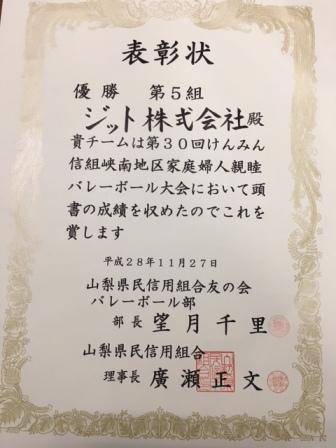 表彰状
優勝 第5組
ジット株式会社殿
貴チームは第30回けんみん
信組峡南地区家庭婦人親睦
バレーボール大会において頭
書の成績を収めたのでこれを
賞します
平成28年11月27日
山梨県民信用組合友の会
バレーボール部
部長 望月千里
山梨県民信用組合
理事長 廣瀬正文